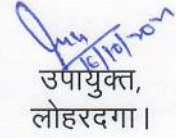 16/10/2021
उपायुक्त,
लोहरदगा।